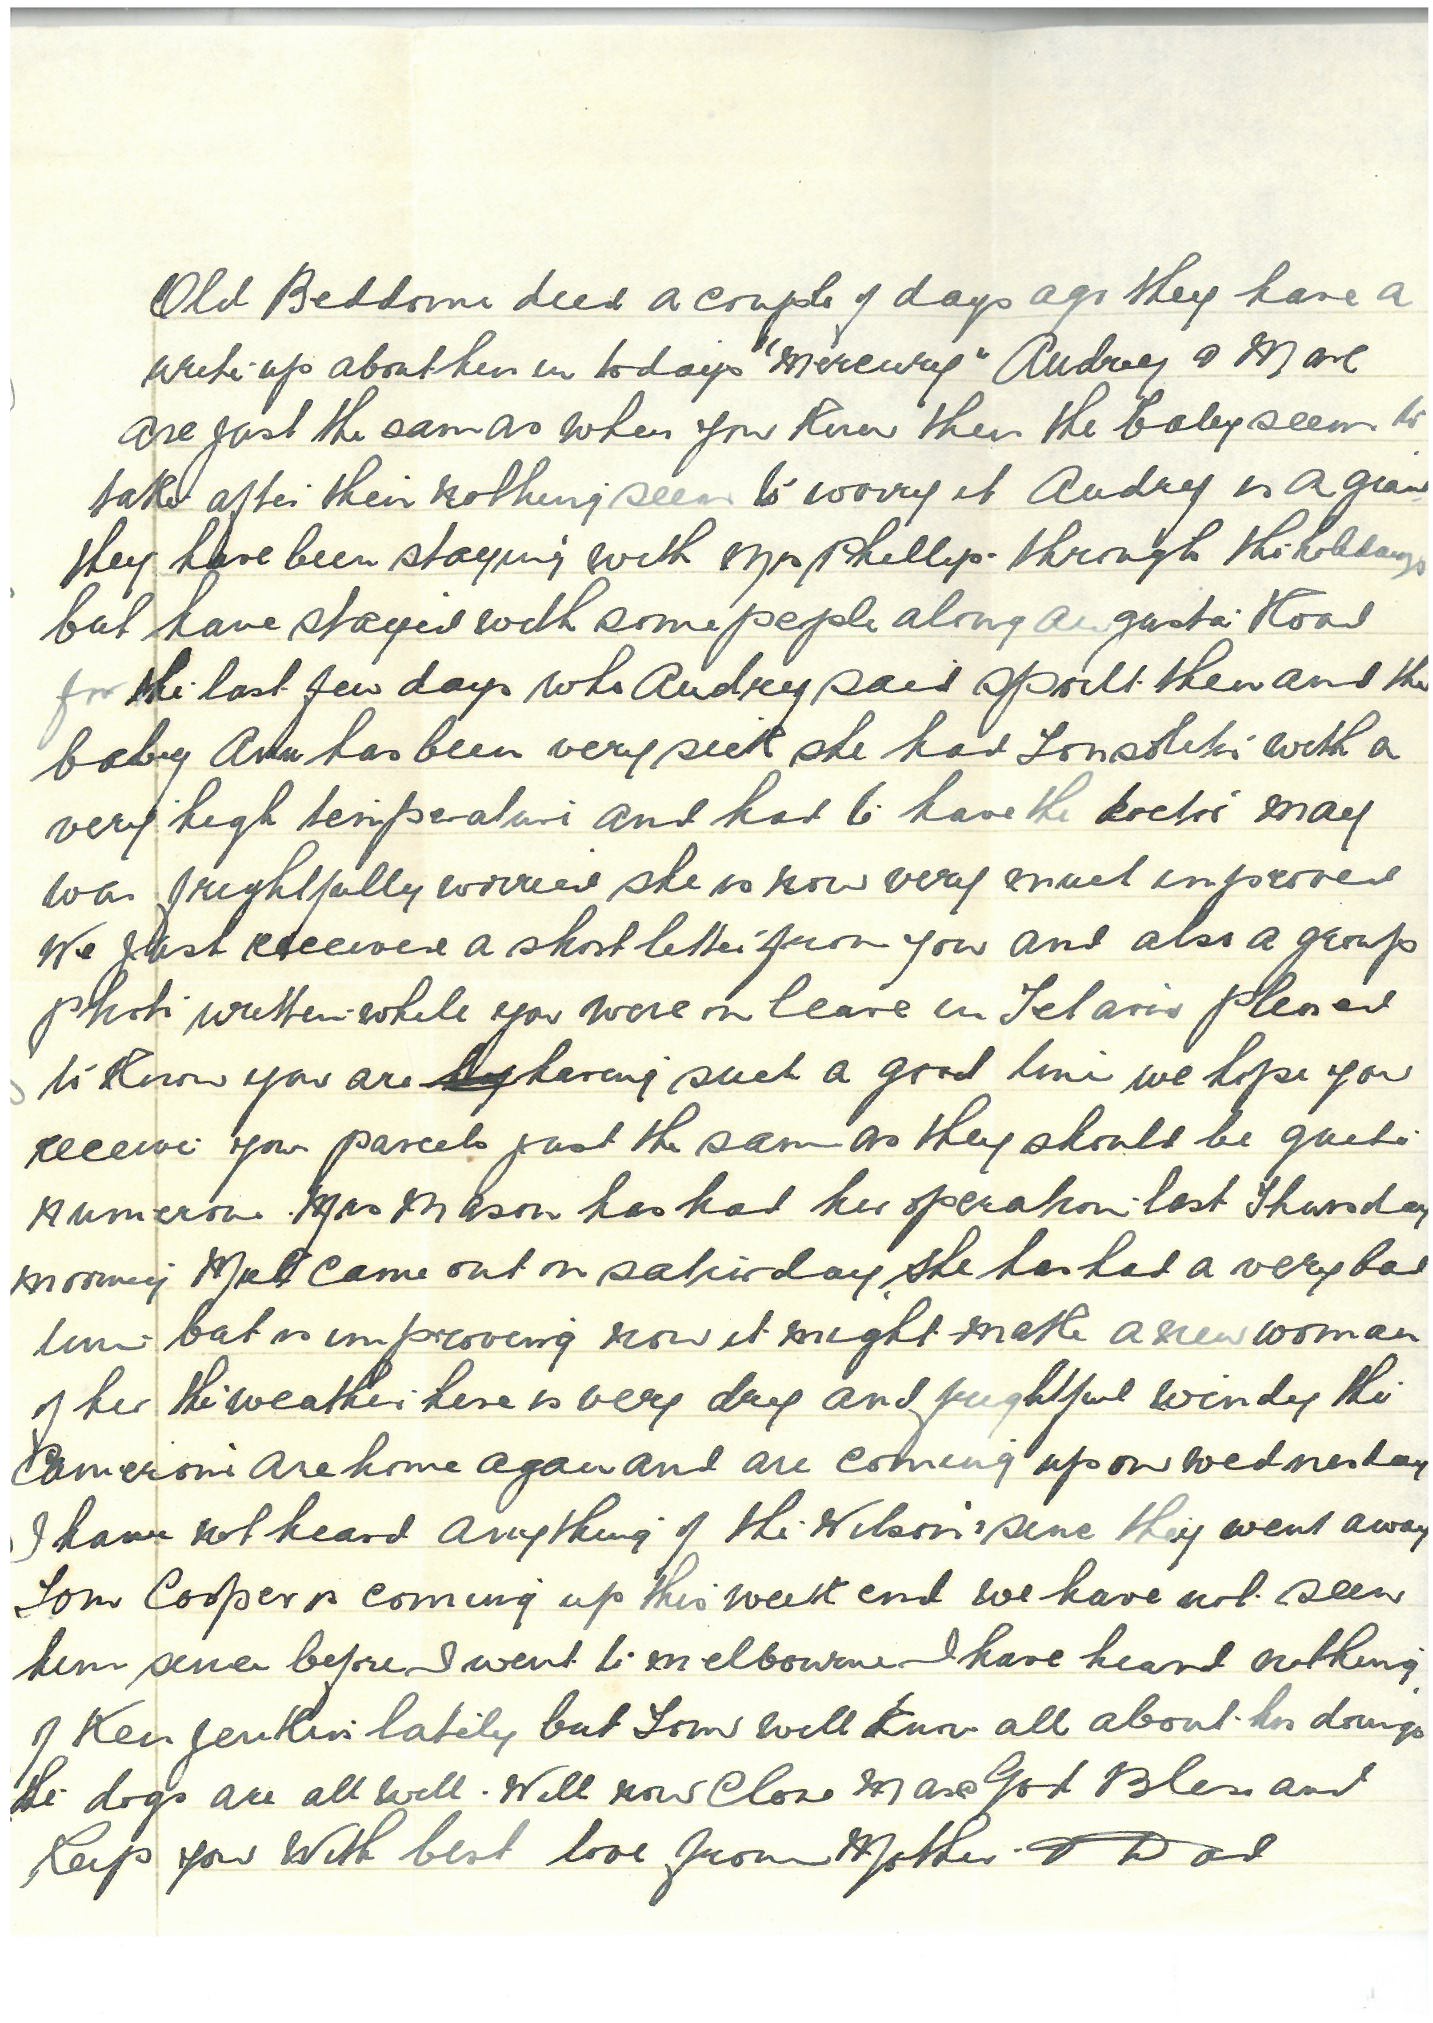 Old Beddome died a couple of days ago they have a
write up about him in todays "Mercury" Audrey & Max
are just the same as when you knew them the baby seems to
take after them nothing seems to worry it Audrey is a
they have been staying with Mrs Phillips through the holidays
but have stayed with some people along Augusta Road
for the last few days who Audrey said spoilt them and the
baby Ann has been very sick she had Tonsolitis with a
very high temperature and had to have the doctor May
was frightfully worried she is now very much improved
We just received a short letter from you and also a group
photo written while you were on leave in Telaviv pleased
to know you are having such a good time we hope you
receive your parcels just the same as they should be quite
numerous Mrs Mason has had her operation last Thursday
morning came out on saturday, she has had a very bad
time but is improving now it might make a new woman
of her the weather here is very dry and frightful windy the
Camerons are home again and are coming up on wednesday
I have not heard anything of the Wilson's since they went away
Tom Cooper is coming up this week end we have not seen
him since before I went to melbourne I have heard nothing
of Ken Jenkins lately but Tom will know all about his doings
the dogs are all well. Will now Close Max God Bless and
Keep you With best love from Mother & Dad